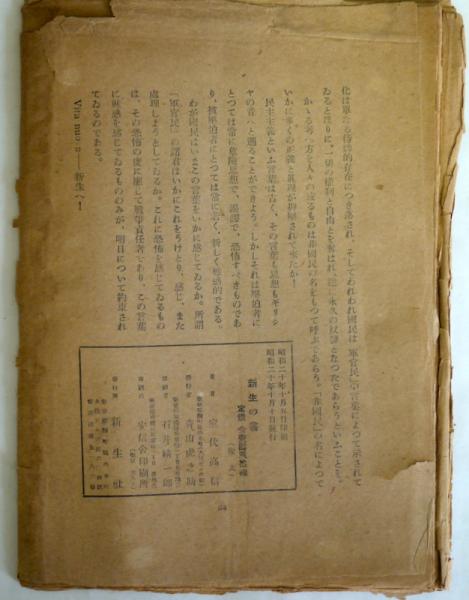 化は單なる侍勢的存在につき落され、そしてわれわれ國民は「軍官民」の言葉によつて示されて
ゐると誤りに、一切の權利と自由とを奪はれ、永久の奴隷となつたであらうといふことを。
かゝる考へ方を人々の或るものは非國民の名をもつて呼ぶであらう。「非國民」の名によつて
いかに多くの正義と眞理が抑壓されて來たか！
民主主義といふ言葉は古く、その言葉も思想もギリシ
ヤの昔へと遡ることができよう。しかしそれは壓迫者に
とつては常に危險思想で、恐怖すべきものであ
り、被壓迫者にとつては常に若く、新しく魅惑的である。
わが國民はいまこの言葉をいかに感じてゐるか。所謂
「軍官民」の諸君はいかにこれをうけとり、感じ、また
處理しようとしてゐるか。これに恐怖を感じてゐるもの
は、その恐怖の度に應じて戰爭責任者であり、この言葉
に魅惑を感じてゐるもののみが、明日について約束され
てゐるのである。
Vita nuova 新生へ！
昭和二十年十月五日印刷
昭和二十年十月十日發行
新生の書
定價
著者 室伏高信
發行者 青山虎之助
印刷者 石井
印刷所
發行所 新生社
64